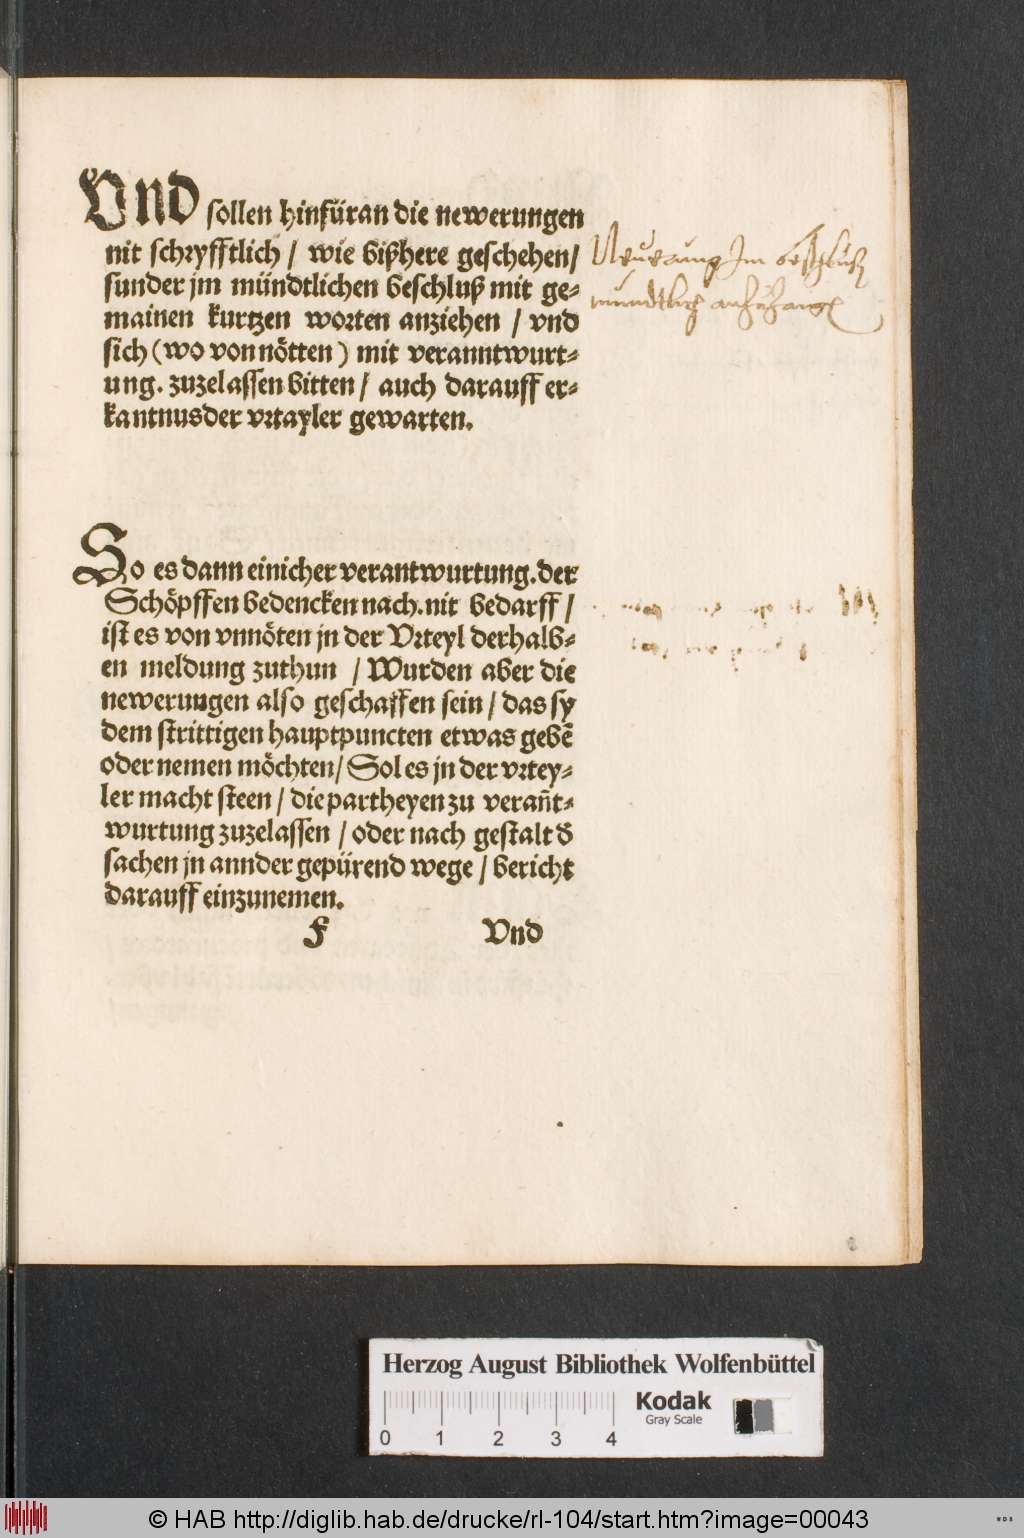 Vnd sollen hinfüran die newerungen
nit schryfftlich / wie bißhere geschehen /
sunder jm mündtlichen beschluß mit ge⸗
mainen kurtzen worten anziehen / vnd
sich (wo von nötten) mit veranntwurt⸗
ung. zuzelassen bitten / auch darauff er⸗
kantnus der vrtayler gewarten.
Neuerung Im beschluß
mundtlich
So es dann einicher verantwurtung. der
Schöpffen bedencken nach. nit bedarff /
ist es von vnnöten jn der Vrteyl derhalb⸗
en meldung zuthun / Wurden aber die
newerungen also geschaffen sein / das sy
dem strittigen hauptpuncten etwas gebē
oder nemen möchten / Sol es jn der vrtey⸗
ler macht steen / die partheyen zu verañt⸗
wurtung zuzelassen / oder nach gestalt d̄
sachen jn annder gepürend wege / bericht
darauff einzunemen.
F Vnd
Herzog August Bibliothek Wolfenbüttel
Kodak
Gray Scale
0 1 2 3 4
© HAB http://diglib.hab.de/drucke/rl-104/start.htm?image=00043